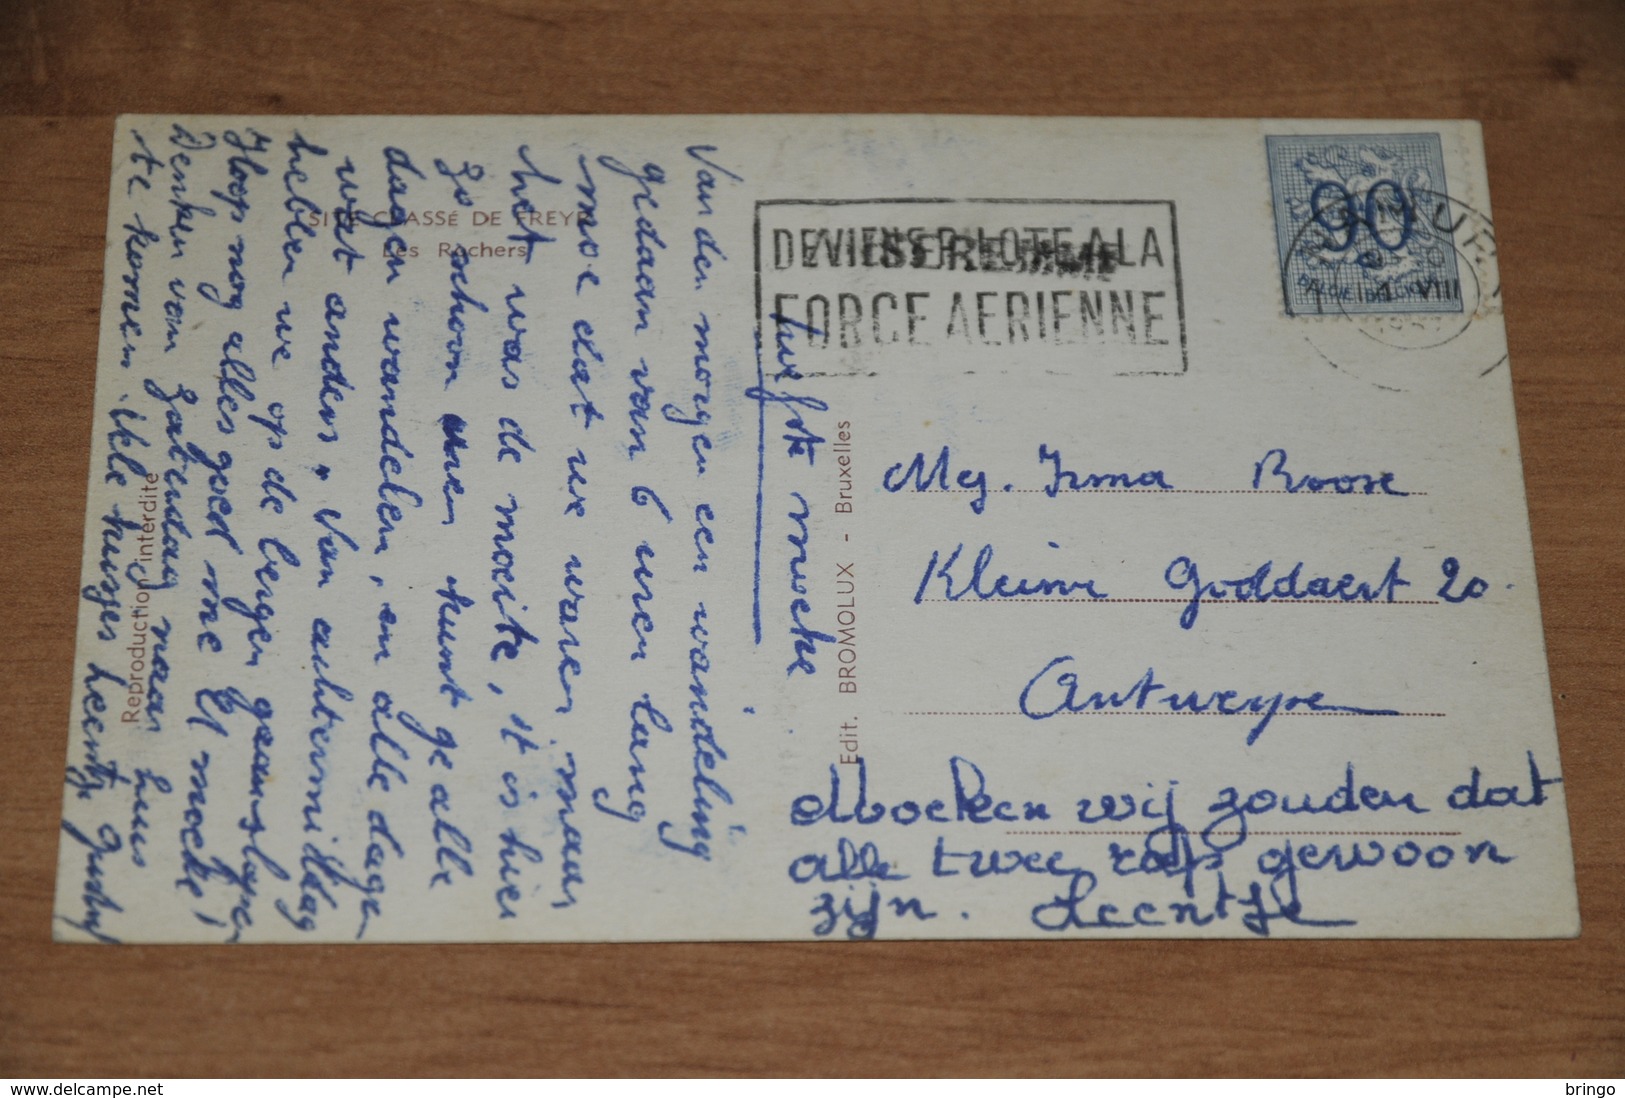 SITE CLASSÉ DE FREYR
Les Rochers
DEVIENS PILOTE A LA
FORCE AERIENNE
90
BELGIE BELGIQUE
NAMUR
VIII
Liefste moeke
Van den morgen een wandeling
gedaan van 6 uren lang
moe dat we waren maar
het was de moeite, 't is hier
zo schoon uren kunt ge alle
dagen wandelen, en alle dagen
wat anders. Van achtermiddag
hebben we op de bergen geslapen
Hoop nog alles goed me U moeke!
Denken van zaterdag naar huis
te komen. Vele kusjes Leentje Gusty
Reproduction interdite
Edit. BROMOLUX - Bruxelles
Mej. Irma Roose
Kleine Goddaert 20.
Antwerpen
Moeken wij zouden dat
alle twee raps gewoon
zijn. Leentje
delcampe.net
bringo